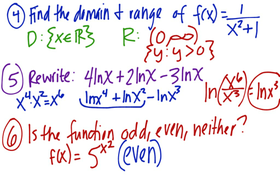 ④ Find the domain & range of f(x) = 1/(x²+1)
D: {x∈ℝ} R: (0, ∞)
{y: y > 0}
⑤ Rewrite: 4lnx + 2lnx - 3lnx
x⁴·x² = x⁶ lnx⁴ + lnx² - lnx³ ln(x⁶/x³) = lnx³
⑥ Is the function odd, even, neither?
f(x) = 5^x² (even)